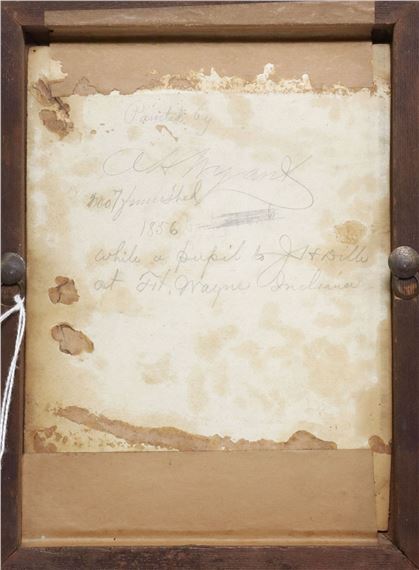 Painted by
A H Wyant
not
1856
while a pupil to J H Dille
at Ft. Wayne Indiana